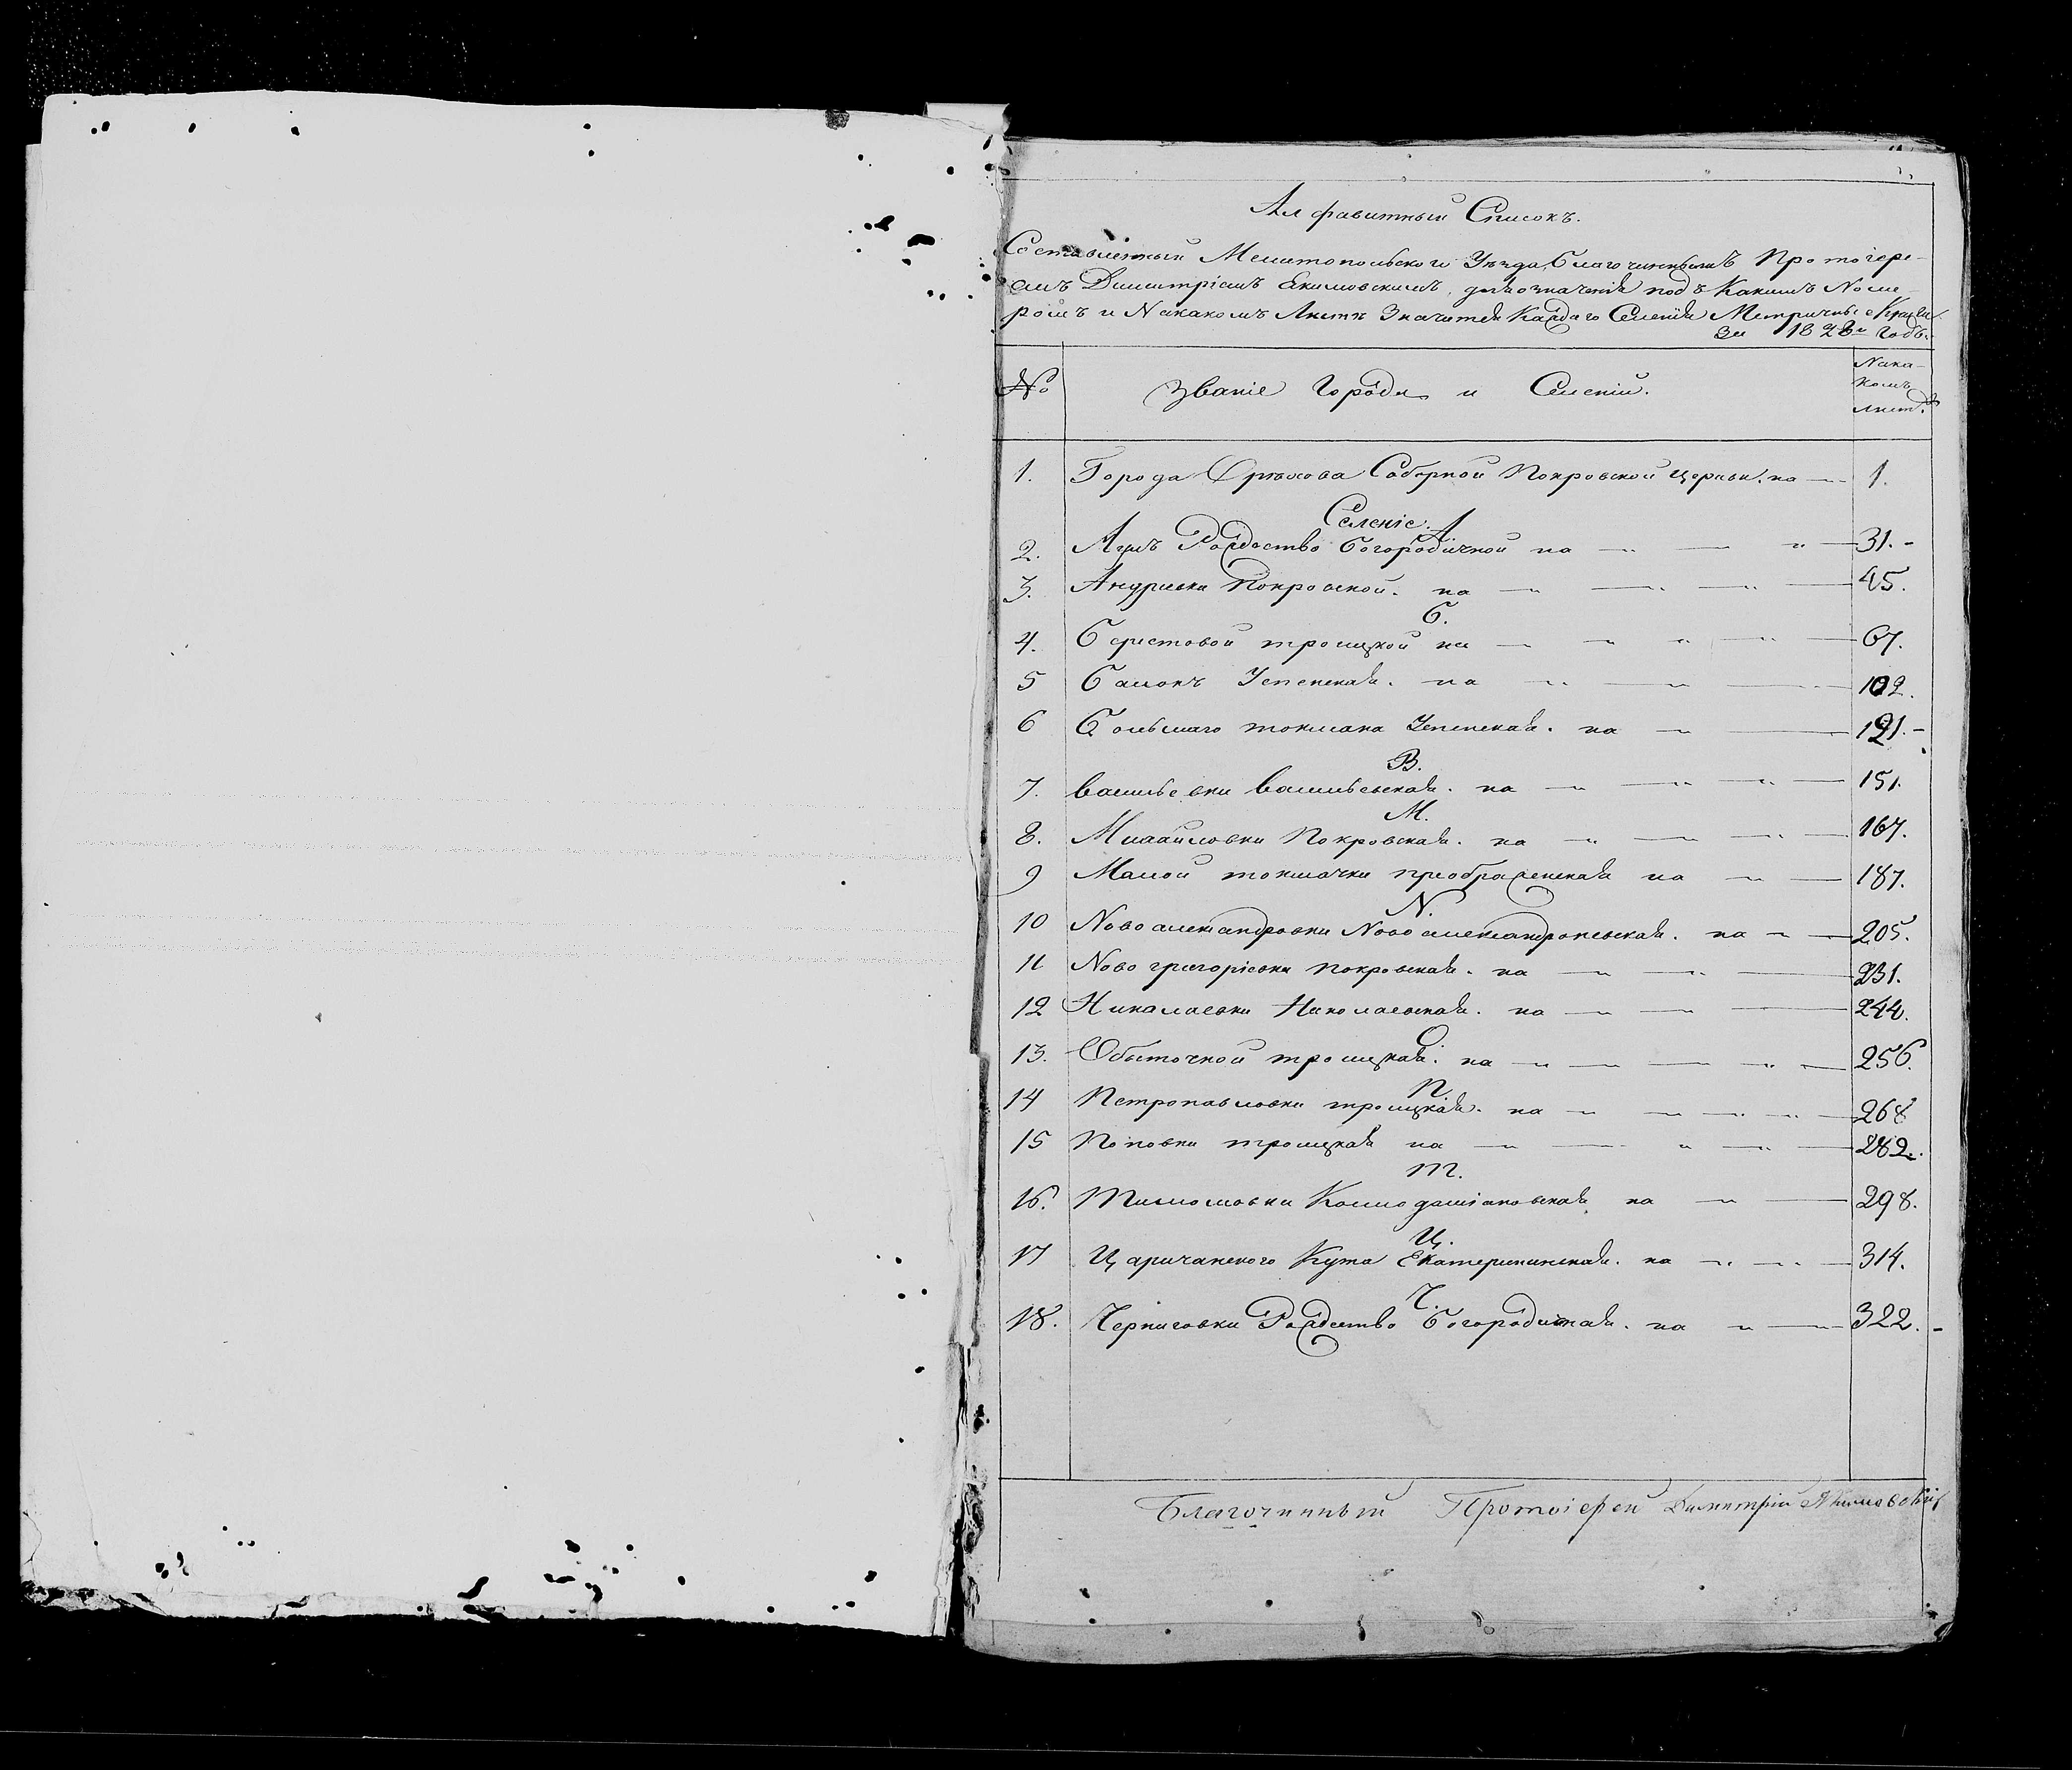 Алфавитный Списокъ.
Составленный Мелитопольского Уѣзда, благочиннымъ Протоіере-
емъ Димитріемъ Екимовскимъ, для означенія подъ Какимъ Номе-
ромъ и Накакомъ Листѣ Значится Каждаго Селенія Метричные Книги
за 1828й Годъ.
№ Званіе Города и Селеній. Нака-
комъ
листѣ
1. Города Орѣхова Соборной Покровской церкви. на 1.
Селеніе. А
2. Ацмъ Рождество Богородичной на 31.
3. Андревки Покровской. на 45.
Б.
4. Берестовой троицкой на 67.
5 Балокъ Успенская. на 102.
6 Большаго токмака Успенская. на 121.
В.
7. Васильевки Васильевская. на 151.
М.
8. Михайловки Покровская. на 167.
9 Малой токмачки преображенская на 187.
N.
10 Новоалександровки Новоалександроневская. на 205.
11 Ново григоріевки покровская. на 231.
12 Николаевки Николаевская. на 244.
О.
13. Обыточной троицкая. на 256.
П.
14 Петропавловки троицкая. на 268
15 Поповки троицкая на 282.
Т.
16. Тимошовки Космодаміановская на 298.
Ц.
17 Царичанского Кута Екатерининская. на 314.
Ч.
18. Черниговки Рождество Богородичная. на 322.
Благочинный Протоіерей Димитрій Якимовскій